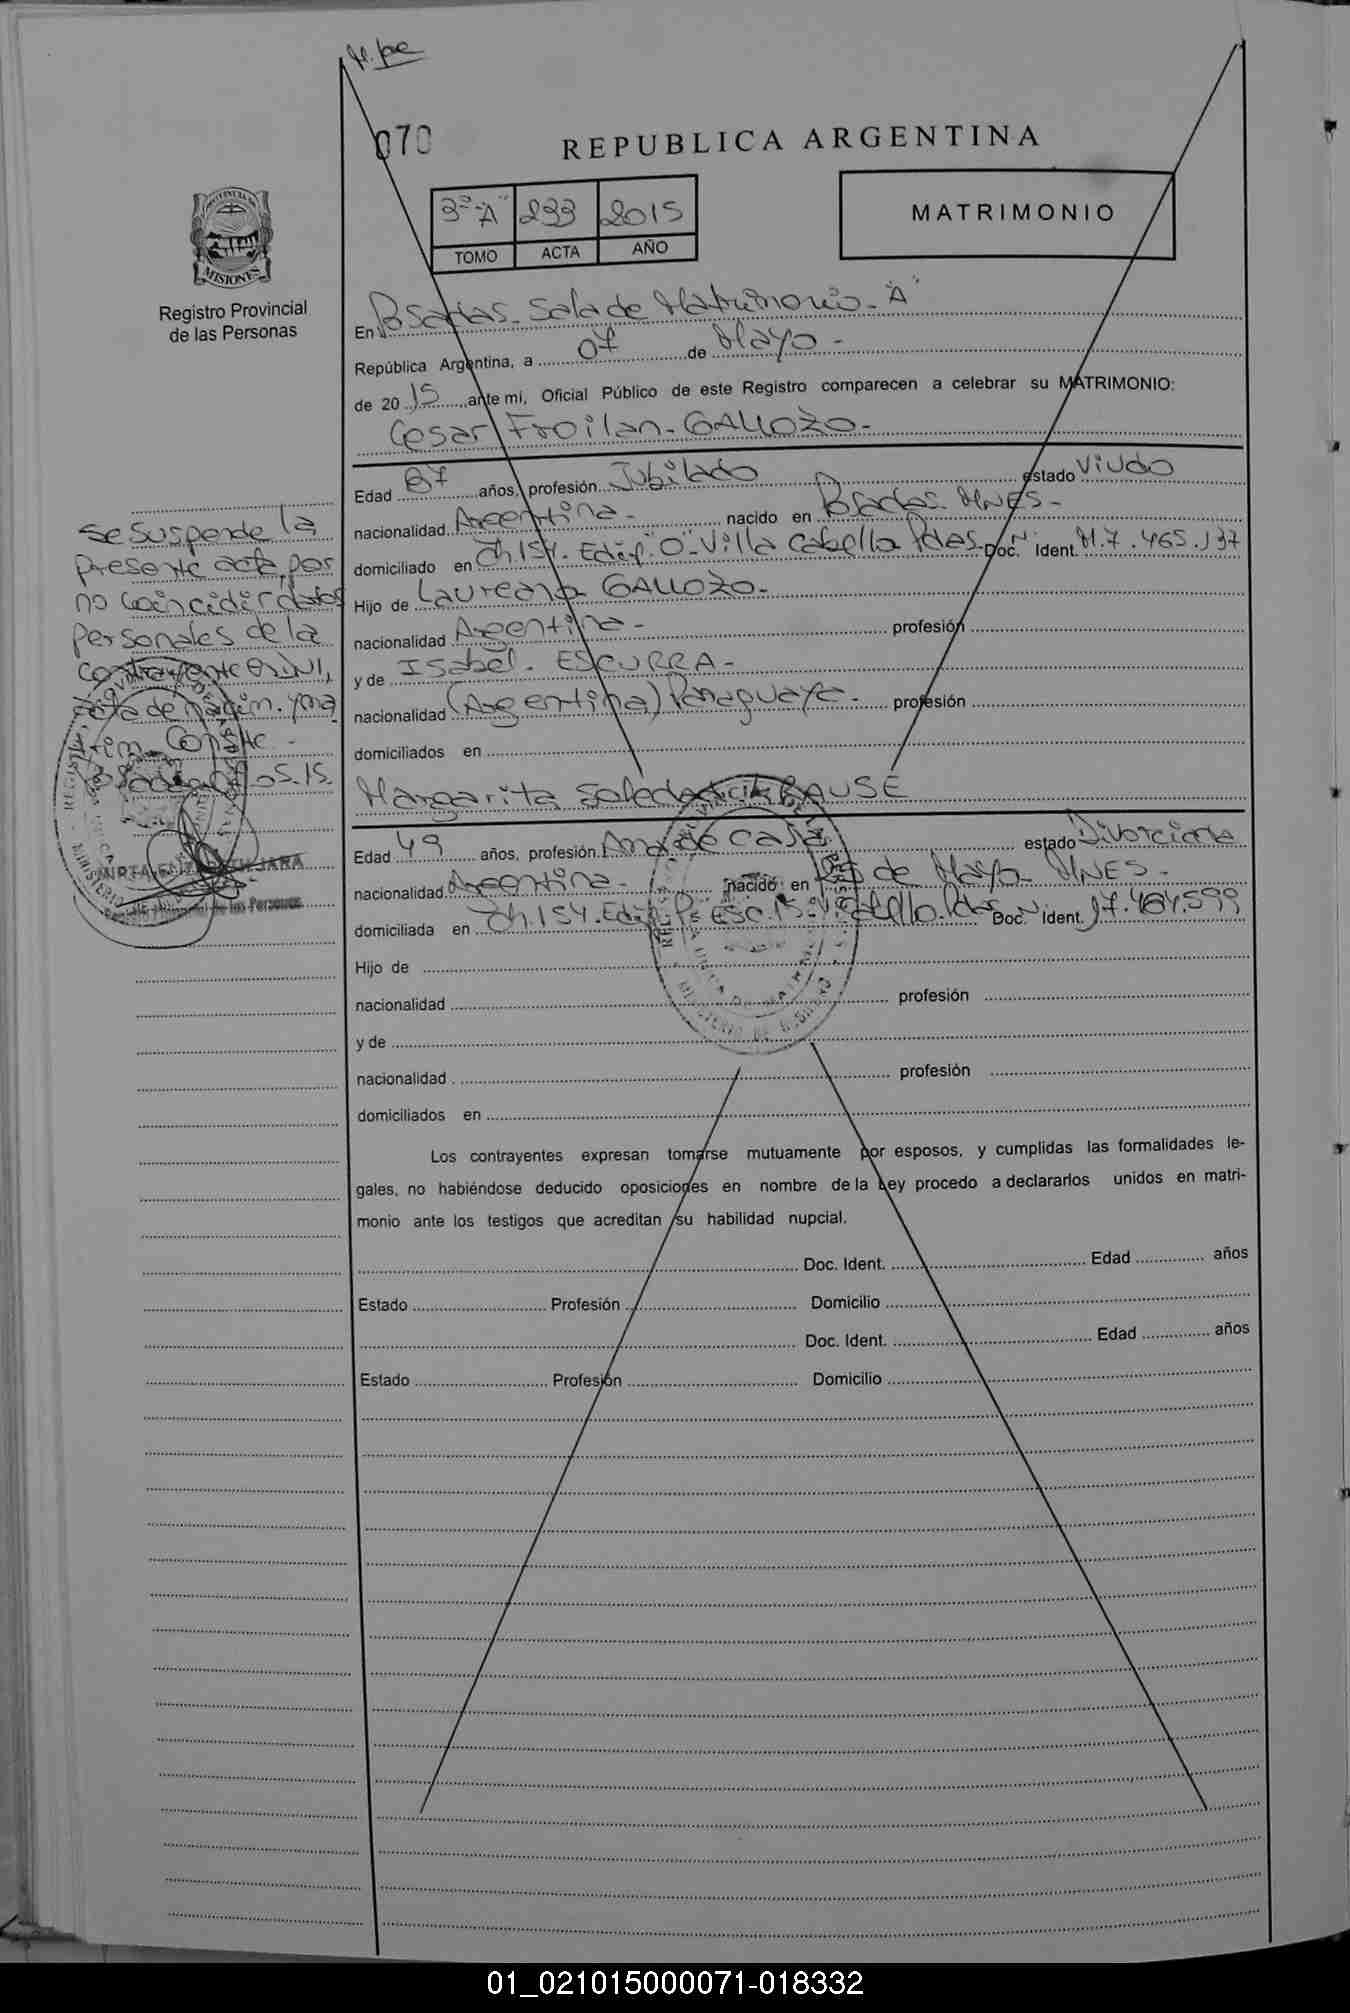 070
REPUBLICA ARGENTINA
3º "A" 233 2015
TOMO ACTA AÑO
MATRIMONIO
MISIONES
Registro Provincial
de las Personas
En Posadas - Sala de Matrimonio - "A"
República Argentina, a 07 de Mayo -
de 2015 ante mi, Oficial Público de este Registro comparecen a celebrar su MATRIMONIO:
Cesar Froilan - GALLOZO -
Edad 87 años, profesión Jubilado estado Viudo
nacionalidad Argentina - nacido en Posadas. MNES -
domiciliado en Ch. 154. Edif. "O" - Villa Cabello Pdas - Doc. Ident. M.7.465.137
Hijo de Laureano GALLOZO -
nacionalidad Argentina - profesión
y de Isabel - ESCURRA -
nacionalidad (Argentina) Paraguaya - profesión
domiciliados en
Margarita Soledad BAUSE
Edad 49 años, profesión Ama de casa estado Divorciada
nacionalidad Argentina - nacido en de Mayo MNES -
domiciliada en Ch. 154. Edif. Esc. 15 - Cabello. Pdas Doc. Ident. 17.464.599
Hijo de
nacionalidad profesión
y de
nacionalidad profesión
domiciliados en
Los contrayentes expresan tomarse mutuamente por esposos, y cumplidas las formalidades le-
gales, no habiéndose deducido oposiciones en nombre de la Ley procedo a declararlos unidos en matri-
monio ante los testigos que acreditan su habilidad nupcial.
Doc. Ident. Edad años
Estado Profesión Domicilio
Doc. Ident. Edad años
Estado Profesión Domicilio
se suspende la
presente acta por
no coincidir datos
personales de la
contrayente DNI,
acta de nacim. y ma
trim. Conste -
Posadas 05.15.
MIRTA ELIZABETH JARA
de las Personas
01_021015000071-018332